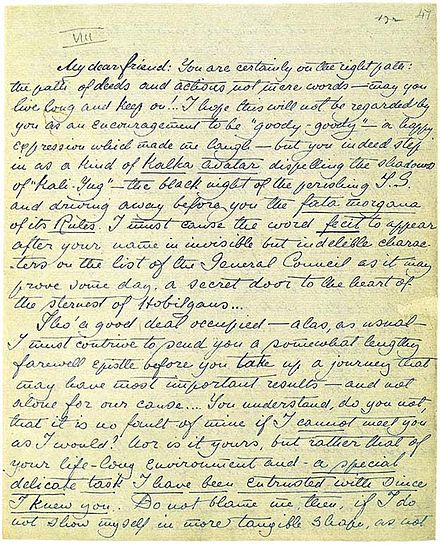 47
VIII
My dear friend: You are certainly on the right path:
the path of deeds and actions not mere words — may you
live long and keep on!... I hope this will not be regarded by
you as an encouragement to be "goody-goody" — a happy
expression which made me laugh — but you indeed step
in as a kind of Kalka avatar dispelling the shadows
of "Kali-Yug" — the black night of the perishing T.S.
and driving away before you the fata morgana
of its Rules. I must cause the word fecit to appear
after your name in invisible but indelible charac-
ters on the list of the General Council as it may
prove some day, a secret door to the heart of
the sternest of Hobilgans...
Tho' a good deal occupied — alas, as usual —
I must contrive to send you a somewhat lengthy
farewell epistle before you take up a journey that
may have most important results — and not
alone for our cause.... You understand, do you not,
that it is no fault of mine if I cannot meet you
as I would? Nor is it yours, but rather that of
your life-long environment and - a special
delicate task I have been entrusted with since
I knew you. Do not blame me, then, if I do
not show myself in more tangible shape, as not